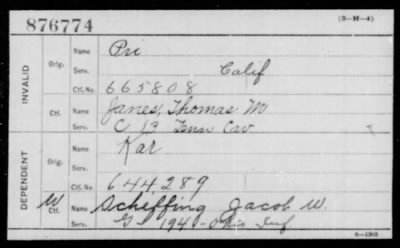 876774 (3-H-4)
INVALID
Orig. Name Pri
Serv. Calif
Ctf. No. 665808
Ctf. Name Janes, Thomas M
Serv. C 13 Tenn Cav
DEPENDENT
Orig. Name Kar
Serv.
Ctf. No. 644289
W Ctf. Name Scheffing Jacob W.
Serv. G 194 Ohio Inf